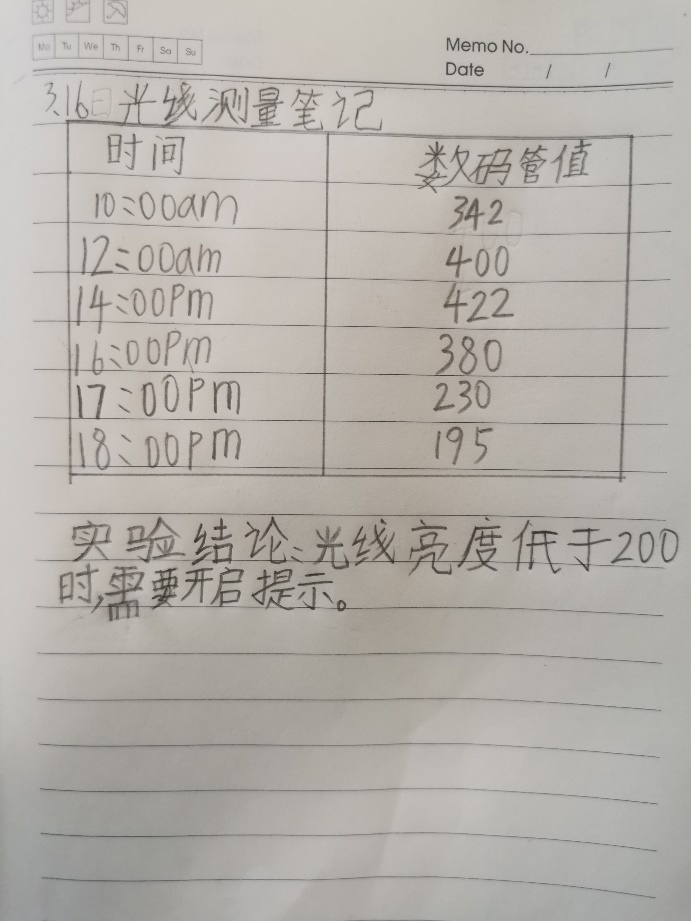 Mo Tu We Th Fr Sa Su
Memo No.
Date / /
3.16日光线测量笔记
时间 数码管值
10:00am 342
12:00am 400
14:00Pm 422
16:00Pm 380
17:00Pm 230
18:00Pm 195
实验结论:光线亮度低于200
时,需要开启提示。